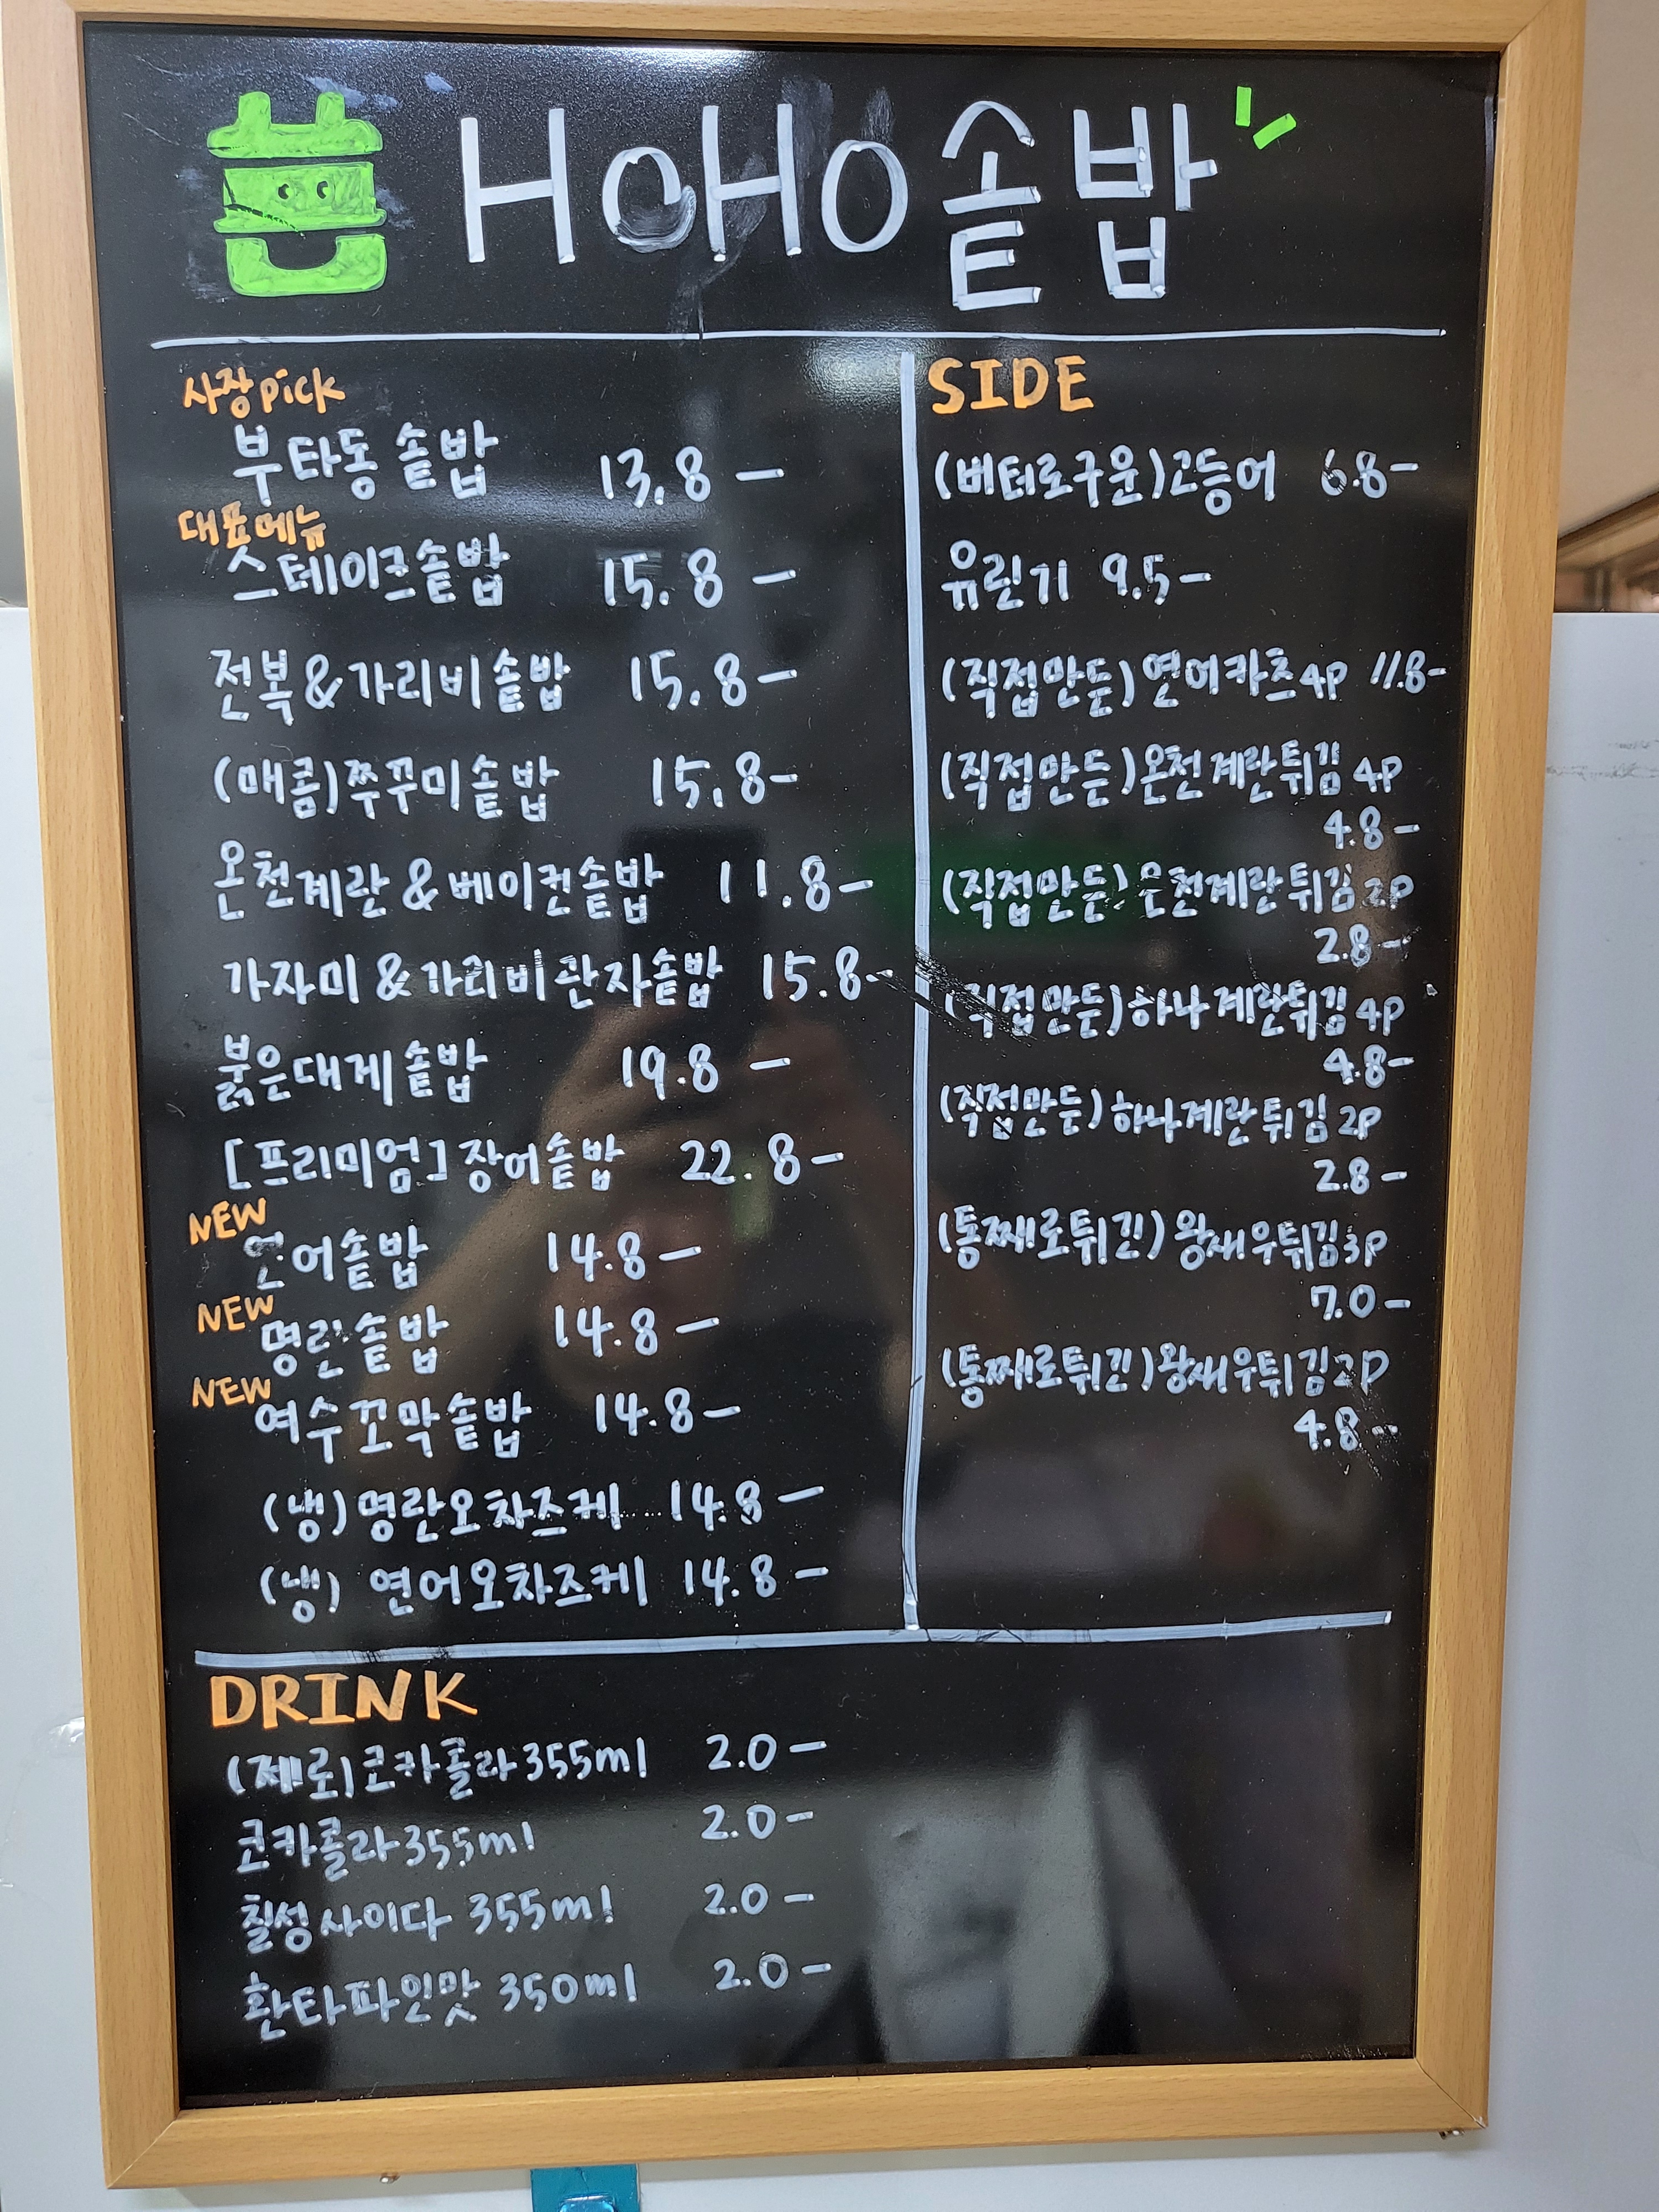 HOHO솥밥
사장pick
부타동솥밥 13.8 -
대표메뉴
스테이크솥밥 15.8 -
전복&가리비솥밥 15.8-
(매콤)쭈꾸미솥밥 15.8-
온천계란&베이컨솥밥 11.8-
가자미&가리비관자솥밥 15.8-
붉은대게솥밥 19.8 -
[프리미엄]장어솥밥 22.8-
NEW
연어솥밥 14.8-
NEW
명란솥밥 14.8-
NEW
여수꼬막솥밥 14.8-
(냉)명란오차즈케 14.8-
(냉) 연어오차즈케 14.8-
SIDE
(버터로구운)고등어 6.8-
유린기 9.5-
(직접만든)연어카츠4p 11.8-
(직접만든)온천계란튀김4p
4.8-
(직접만든)온천계란튀김2p
2.8-
(직접만든)하나계란튀김4p
4.8-
(직접만든)하나계란튀김2p
2.8-
(통째로튀긴)왕새우튀김3p
7.0-
(통째로튀긴)왕새우튀김2p
4.8-
DRINK
(제로)코카콜라355ml 2.0-
코카콜라355ml 2.0-
칠성사이다 355ml 2.0-
환타파인맛 350ml 2.0-